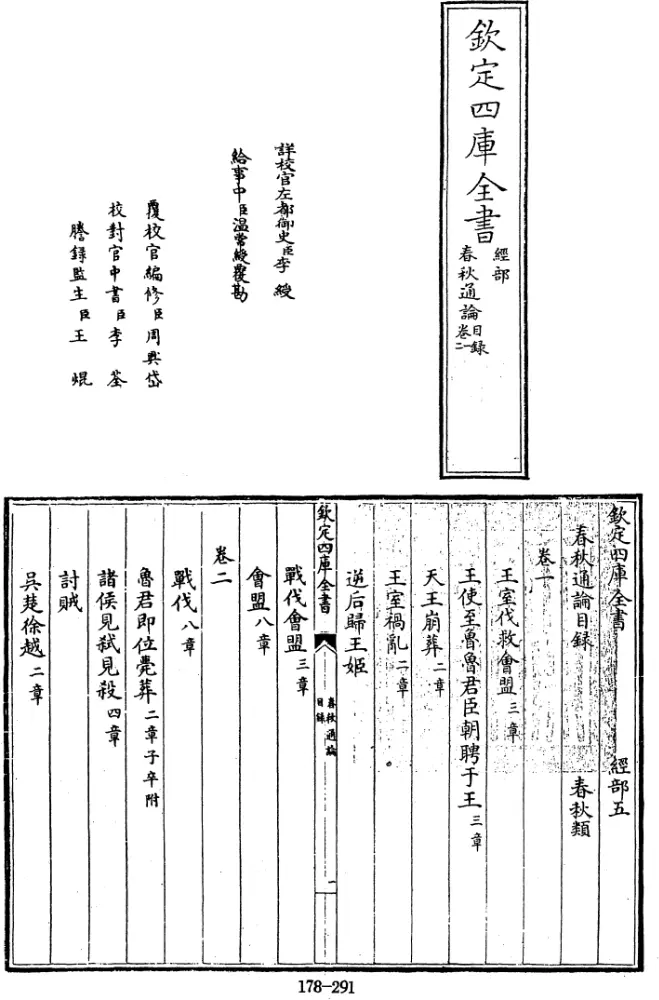 欽定四庫全書
經部
春秋通論目録
卷一
二
詳校官左都御史臣李綬
給事中臣温常綬覆勘
覆校官編修臣周興岱
校對官中書臣李荃
謄録監生臣王焜
欽定四庫全書 經部五
春秋通論目録 春秋類
卷一
王室伐救會盟三章
王使至魯魯君臣朝聘于王三章
天王崩葬二章
王室禍亂二章
逆后歸王姬
欽定四庫全書
春秋通論
目録
一
戰伐會盟三章
會盟八章
卷二
戰伐八章
魯君即位薨葬二章子卒附
諸侯見弒見殺四章
討賊
吳楚徐越二章
178-291